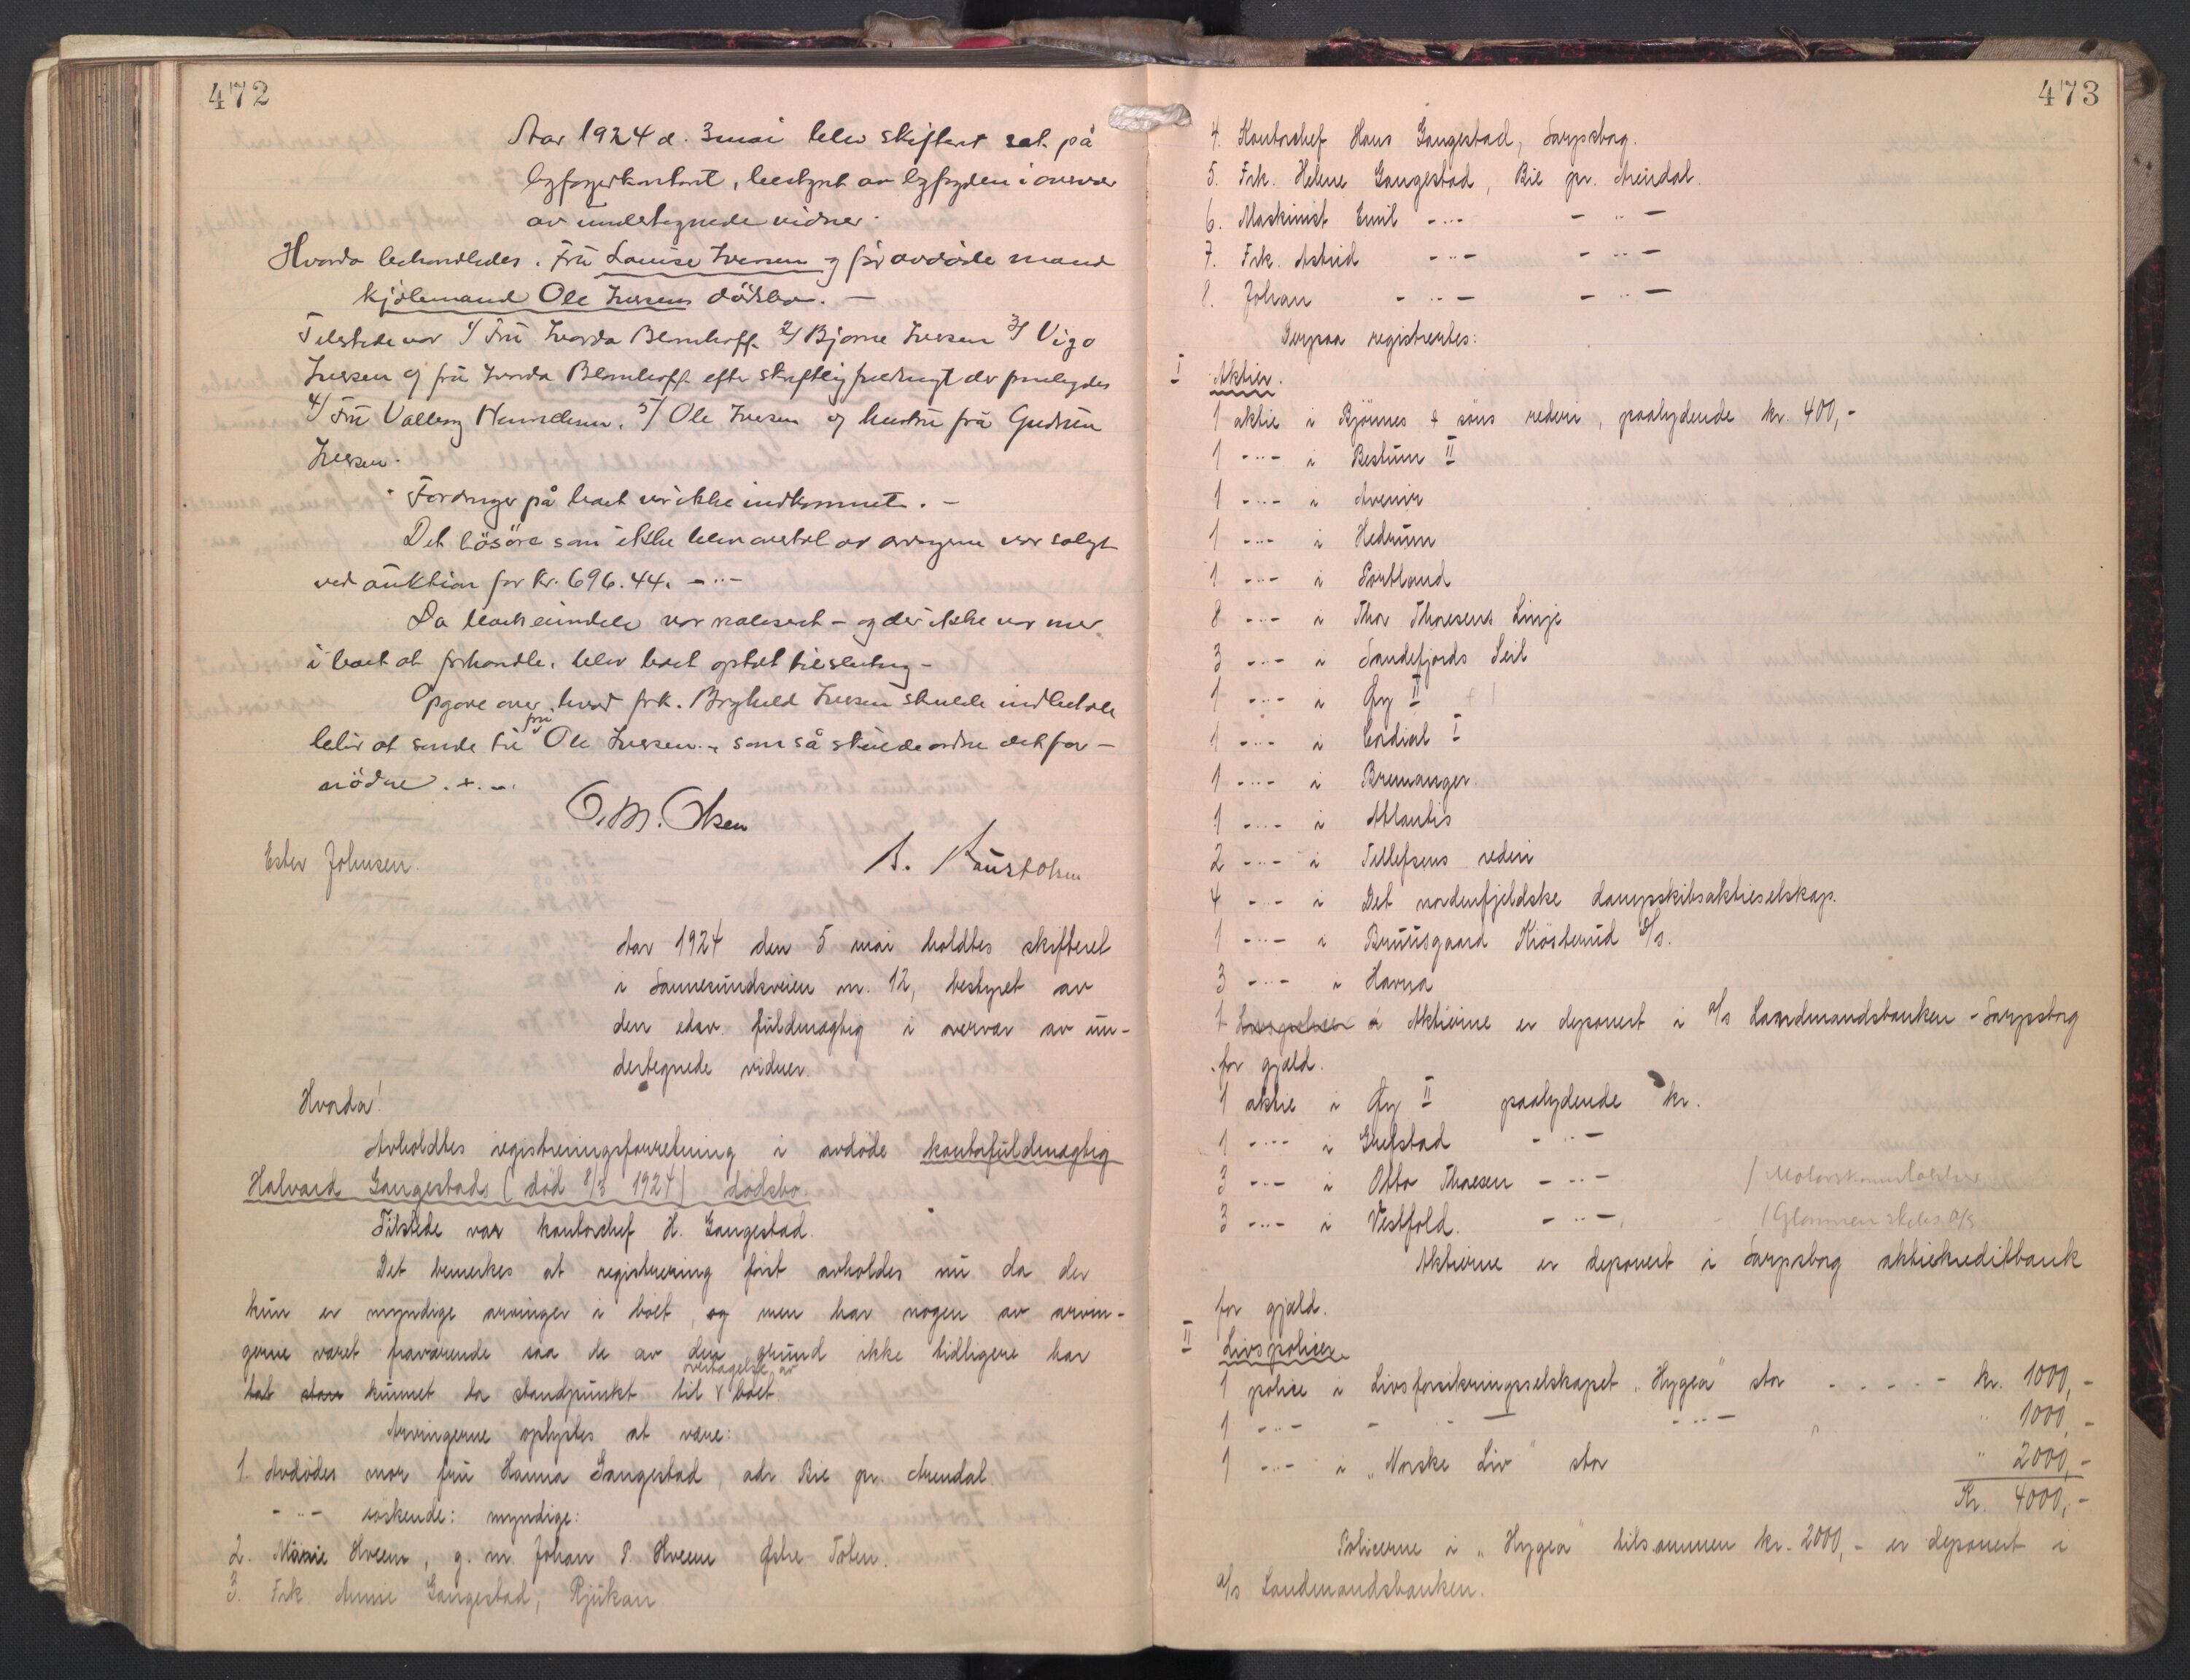 472
Aar 1924 d. 3 mai blev skifteret sat på
byfogedkontoret, bestyret av byfogden i overvær
av undertegnede vidner.
Hvorda behandledes. Fru Louise Iversen og før avdøde mand
kjölemand Ole Iversens dödsbo. —
Tilstede var 1/ Fru Borda Blomhoff 2/ Bjarne Iversen 3/ Vigo
Iversen og fru Blomhoff efter skriftlig fuldmagt der fremlagdes
4/ Fru Valborg 5/ Ole Iversen og hustru fru Gudrun
Iversen.
Fordringer på boet var ikke indkommet. —
Det lösöre som ikke blev overtat av arvingerne var solgt
ved auktion for kr. 696.44. -"-
Da boets eiendele var realisert – og der ikke var mer
i boet at forhandle, blev boet optat til slutning –
Opgave over, hvad frk. Borghild Iversen skulde indbetale
blir at sende til fru Ole Iversen. – som så skulde ordne det for-
nödne. +. –.
O. M. Olsen
Ester Johnsen.
A.
Aar 1924 den 5 mai holdtes skifteret
i Sannesundsveien nr. 12, bestyret av
den edsv. fuldmægtig i overvær av un-
dertegnede vidner.
Hvorda!
Avholdtes registreringsforretning i avdöde kontorfuldmægtig
Halvard Gangestads (död 8/3 1924) dödsbo.
Tilstede var kontorchef H. Gangestad.
Det bemerkes at registrering först avholdes nu da der
kun er myndige arvinger i boet, og men har nogen av arvin-
gerne været fraværende saa de av den grund ikke tidligere har
tat stan kunnet ta standpunkt til overtagelse av boet.
Arvingerne oplystes at være:
1. Avdødes mor fru Hanna Gangestad, adr. Bie pr. Arendal.
- " - söskende: myndige:
2. Marie Hveem, g. m. Johan P. Hveem Østre Toten.
3. Frk. Annie Gangestad, Rjukan
473
4. Kontorchef Hans Gangestad, Sarpsborg.
5. Frk. Helene Gangestad, Bie pr. Arendal.
6. Maskinist Emil -"- - " -
7. Frk. Astrid -"- - " -
8. Johan - " - - " -
Derpaa registrertes:
I Aktier.
1 aktie i Björnes & söns rederi, paalydende kr. 400,-
1 -"- i Bestum II
1 -"- i Avenir
1 -"- i Hedrum
1 -"- i Portland
8 -"- i Thor Thoresens Linje
3 -"- i Sandefjords Seil
1 -"- i Gry II + 1
1 -"- i Cordial I
1 -"- i Bremanger.
1 -"- i Atlantis
2 -"- i Tellefsens rederi
4 -"- i Det nordenfjeldske dampskibsaktieselskap.
1 -"- i Bruusgaard Kiösterud A/s.
3 -"- i Havna
1 Aktierne er deponert i a/s Landmandsbanken - Sarpsborg
for gjæld.
1 aktie i Gry II paalydende kr.
1 -"- i Grefstad - " -
3 -"- i Otto Thoresen - " -
3 -"- i Vestfold. - " - / Glommen skibs A/S
Aktierne er deponert i Sarpsborg aktiekreditbank
for gjæld.
II Livspoliser.
1 police i Livsforsikringsselskapet "Hygea" stor - . . . - kr. 1000,-
1 -"- - " - - " - " 1000,-
1 -"- i "Norske Liv" stor " 2000,-
Kr. 4000,-
Policerne i "Hygea" tilsammen kr. 2000,- er deponert i
a/s Landmandsbanken.